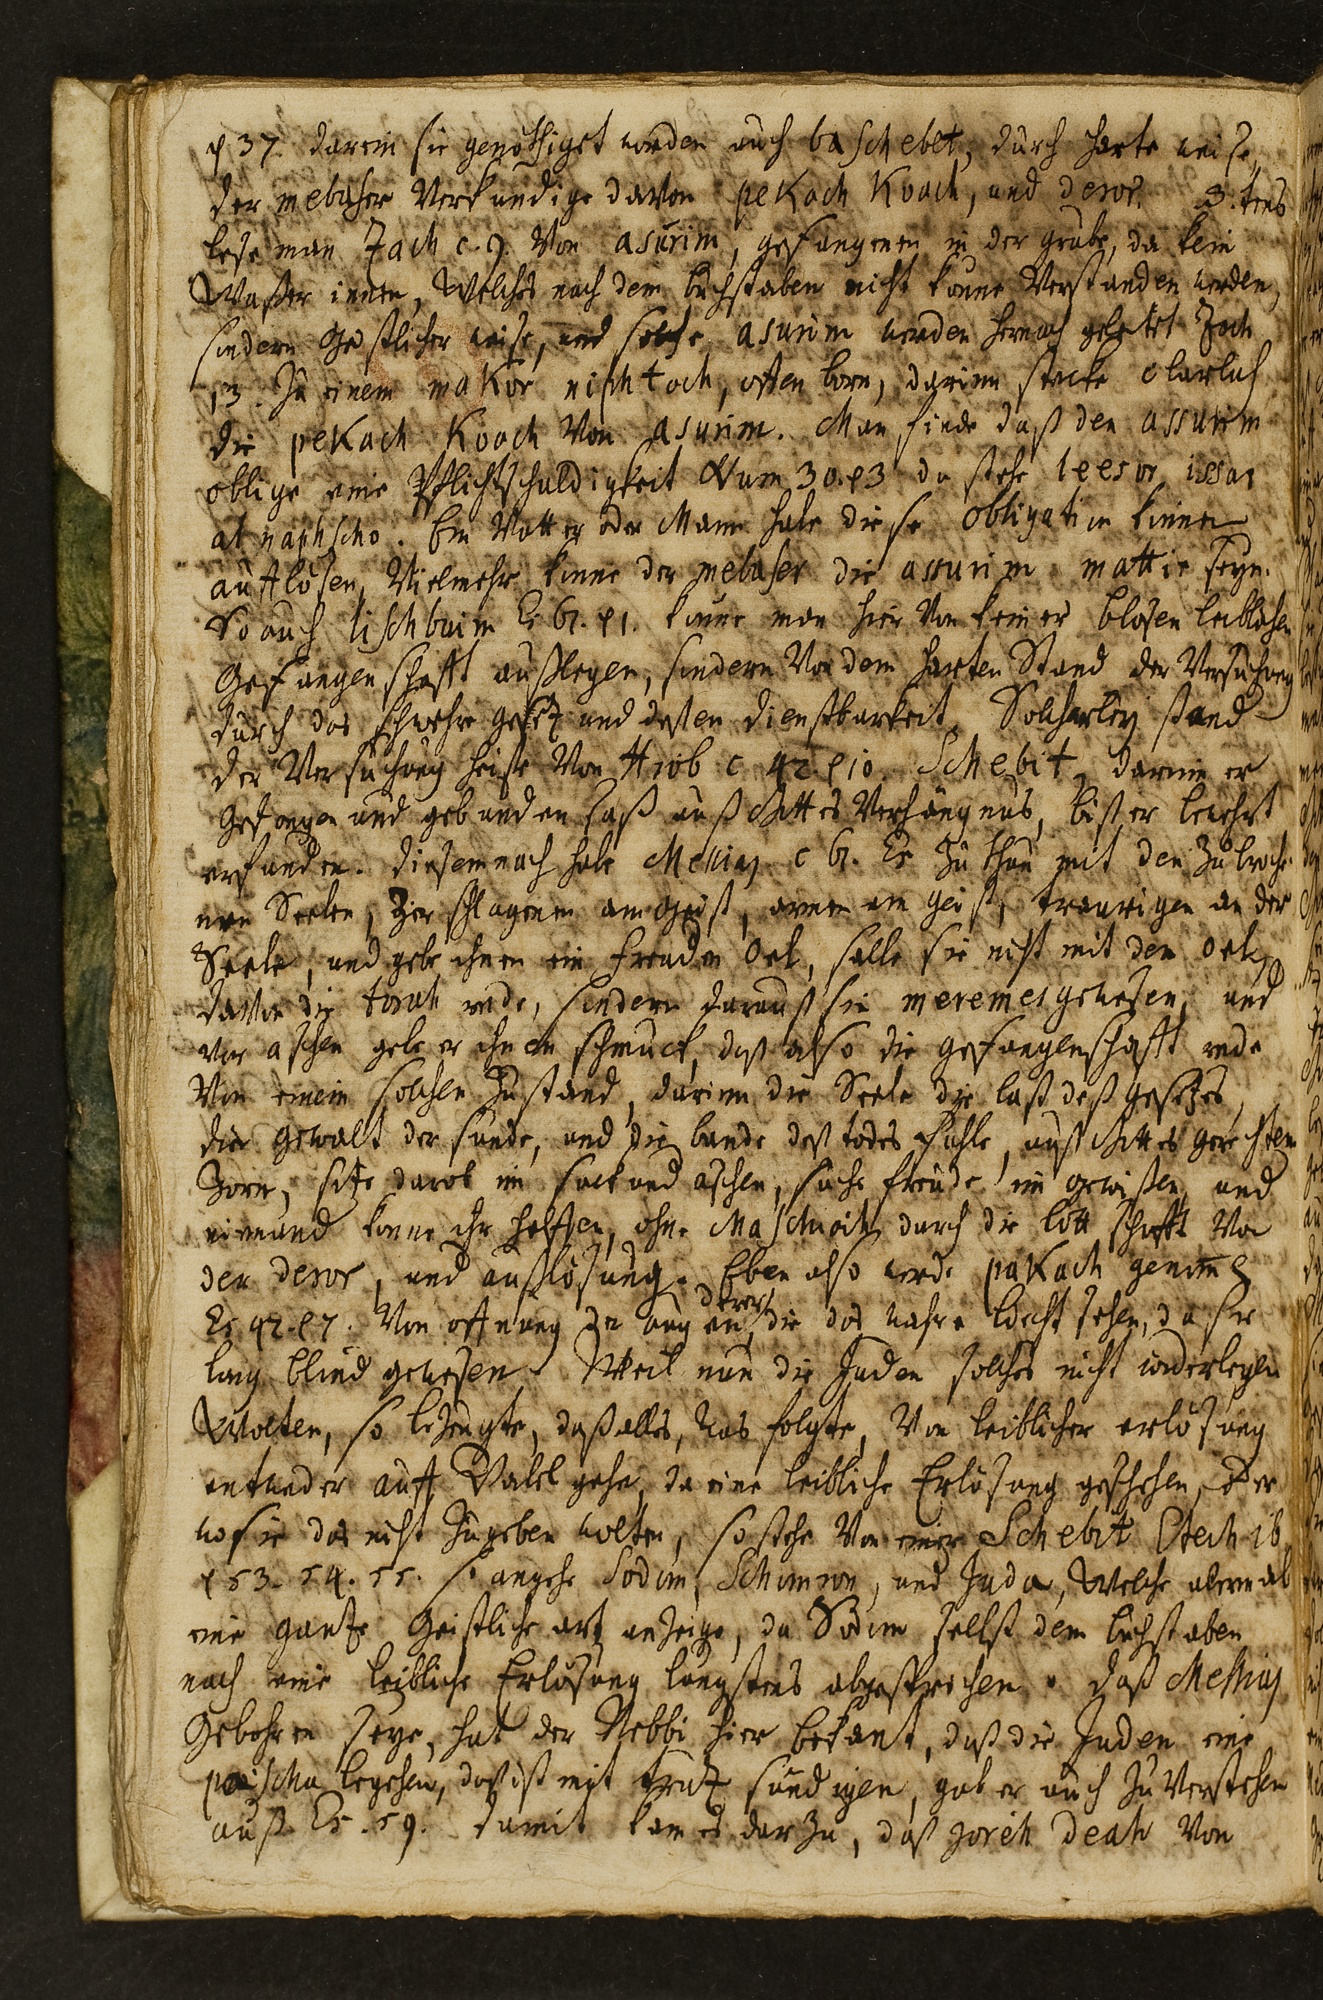 p 37. darein sie genöthiget worden auch baschebet, durch harte weise
der mebaser Verkundige davon pekach koach, und deror. 3.tens
lese man Zach c. 9. Von asurim, gefangenen in der grube, da kein
Waßer innen, Welches nach dem buchstaben nicht könne Verstanden werden,
sondern Geistlicher weise, und solche asurim werden hernach geleitet Zach
13. Zu einem makor niphtoch, offen born, darinn stecke clarlich
die pekach koach Von asurim. Man finde daß den assurim
oblige eine Pflichtschuldigkeit Num 30. p3 da stehe leesor issar
al naphscho. Ein Vatter oder Mann habe diese obligation können
aufflösen, Vielmehr könne der mebaser die assurim mattir seyn.
So auch lischbuim Es 61. p1. könne man hier Von keiner blosen leiblichen
Gefangenschafft außlegen, sondern Von dem harten Stand der Versuchung
durch das schwehre gesetz und deßen dienstbarkeit. Solcherley stand
der Versuchung heiße Von Hiob c 42. p 10. Schebit, darinn er
Gefangen und gebunden saß auß Gottes Verhängnus, biß er bewehrt
erfunden. diesemnach habe Messias c 61. Es zu thun mit den zubroche-
nen Seelen, Zerschlagenen am geist, armen am geist, traurigen an der
Seele, und gebe ihnen ein freuden Oel, salbe sie nicht mit dem oel,
davon die torah rede, sondern darauß sie meremes gewesen, und
vor aschen gebe er ihnen schmuck, daß also die gefangenschafft rede
Von einem solchen Zustand, darinn die Seele die last deß gesetzes,
die gewalt der sunde, und die bande deß todes fühle, auß Gottes gerechtem
Zorn, sitze darob im sack und aschen, suche freude im gewißen, und
niemand könne ihr helffen, ohne Maschiach durch die bottschafft Von
der deror, und außlösung. Eben also werde pakach genom̅en
Es 42. p7. Von offnung der augen derer, die das wahre liecht sehen, da sie
lang blind gewesen. Weil nun die Juden solches nicht widerlegen
Wolten, so bezeugte, daß alles, was folgte, Von leiblicher erlösung
entweder auff Babel gehe, da eine leibliche Erlösung geschehen, oder
wo sie das nicht Zugeben wolten, so stehe Von einer Schebit Ezech 16
p 53. 54. 55. so angehe Sodom, Schomron, und Juda, Welche abermal
eine gantz Geistliche art anzeige, da Sodom selbst dem buchstaben
nach eine leibliche Erlösung längstens abgesprochen. daß Messias
Gebohren seye, hat der Rebbi hier bekant, daß die Juden eine
peischa begehen, das ist mit trutz sündigen, gab er auch zu Verstehen
auß Es. 59. damit kam es darzu, daß joreh deah Von